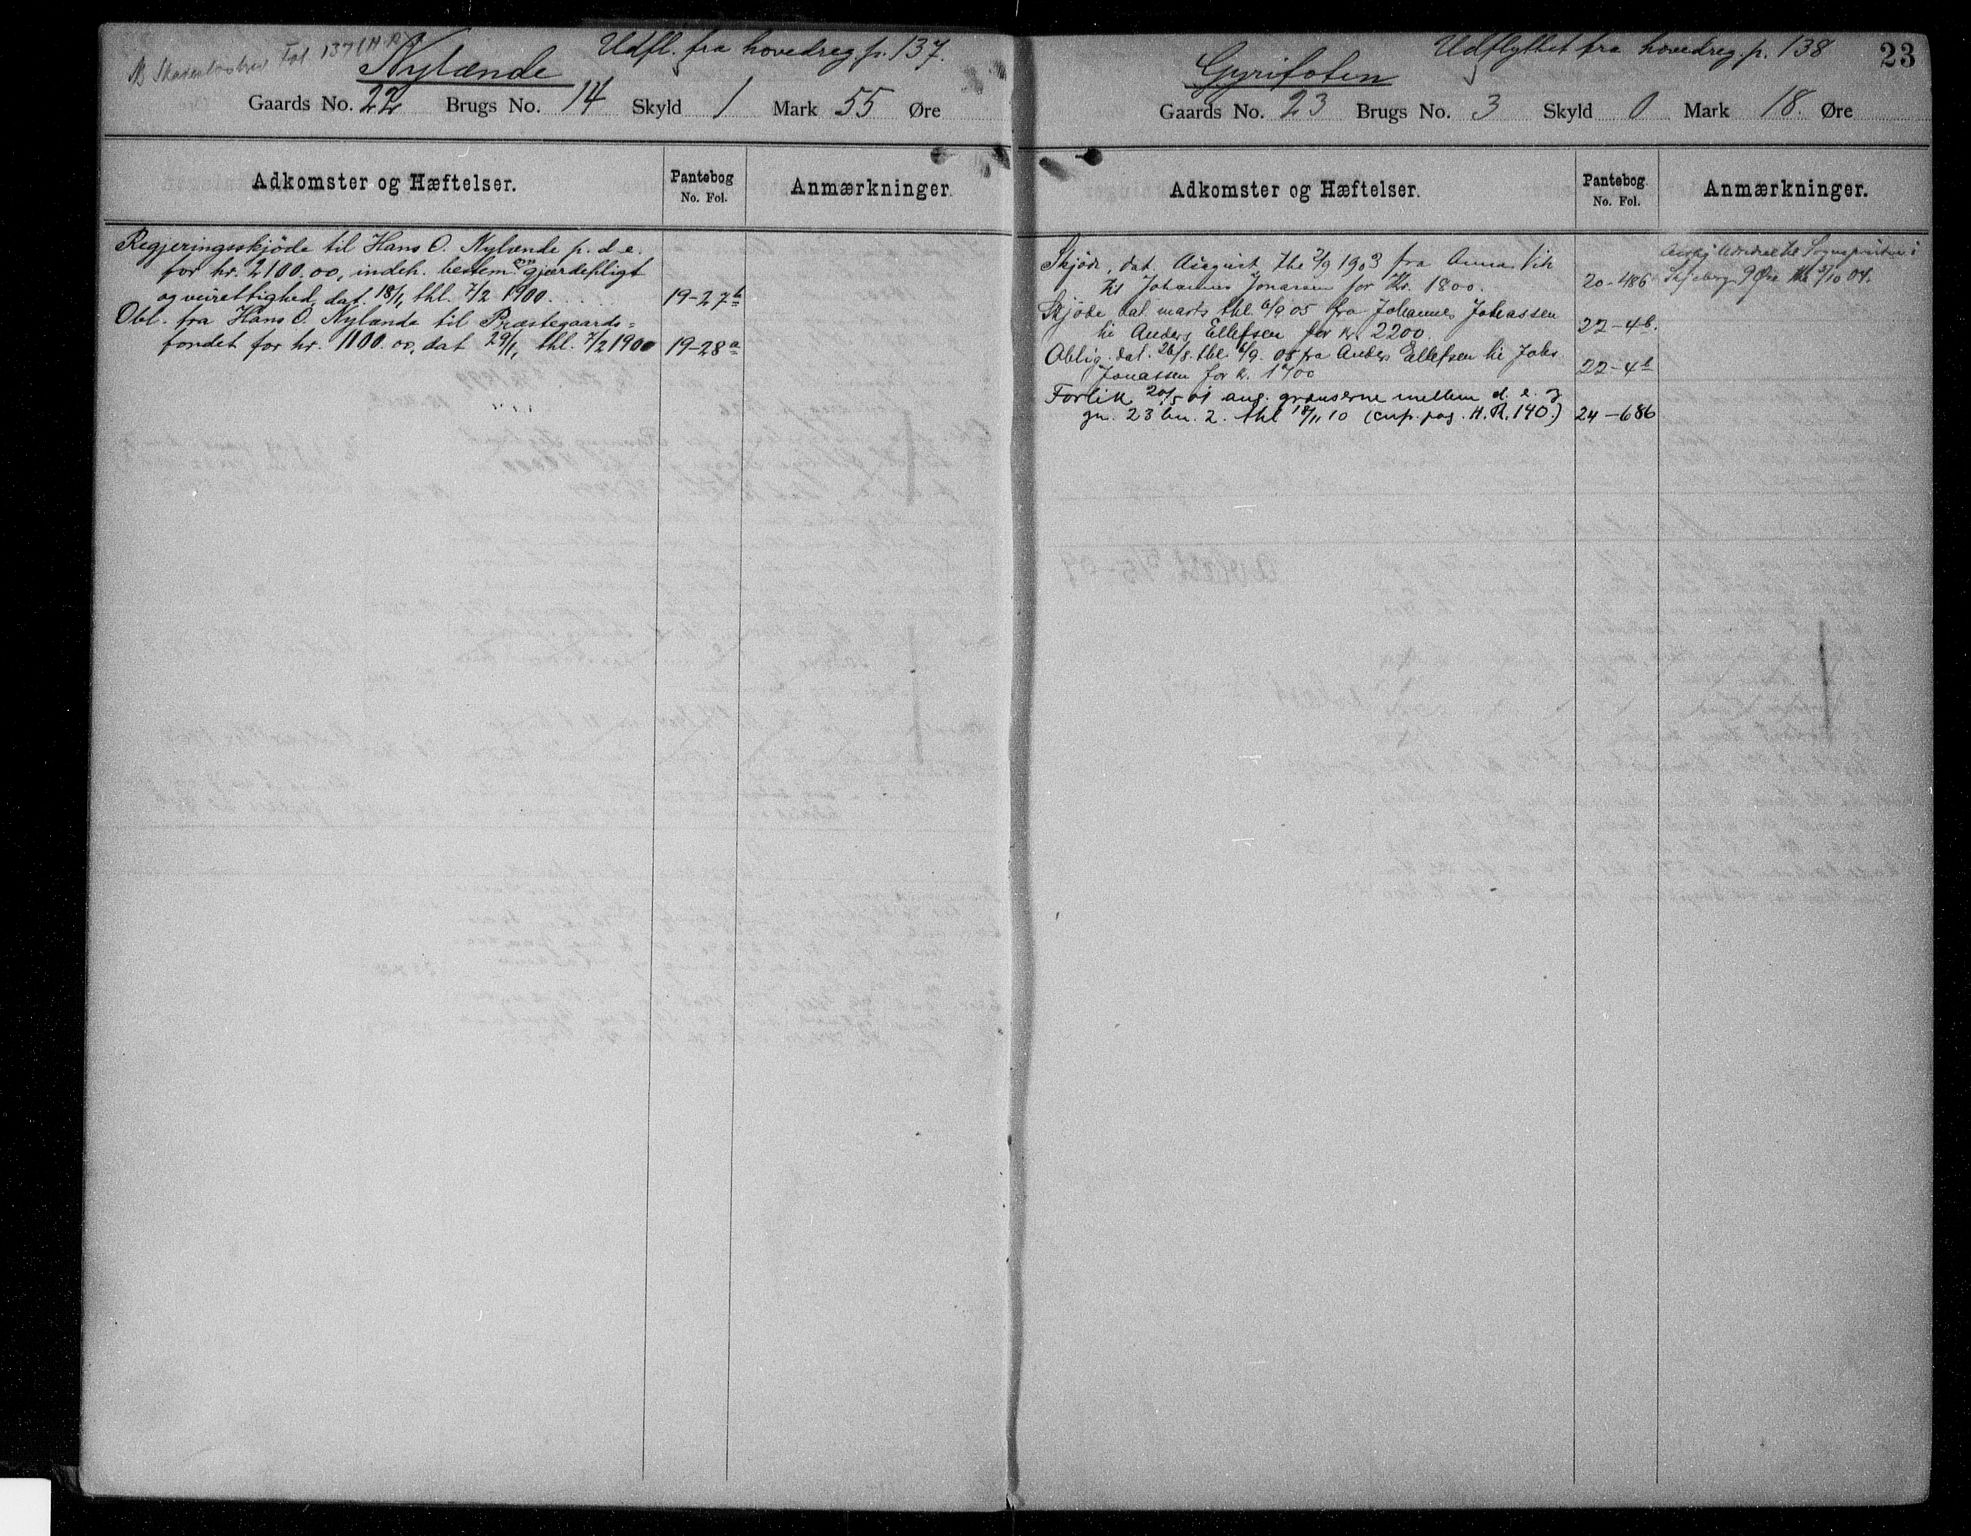 Fol. 137 (H.R.)
Nylænde
Udfl. fra hovedreg. p. 137.
Gaards No. 22 Brugs No. 14 Skyld 1 Mark 55 Øre
Adkomster og Hæftelser.
Pantebog
No. Fol.
Anmærkninger.
Regjeringsskjøde til Hans O. Nylænde p. d. e.
for kr. 2100.00, indeh. bestem. om gjærdepligt
og veirettighed, dat. 18/1, thl. 7/2 1900. 19-27b
Obl. fra Hans O. Nylænde til Præstegaards=
fondet for kr. 1100.00, dat 29/1, thl. 7/2 1900 19-28a
Gyrifoten
Udflyttet fra hovedreg. p. 138
23
Gaards No. 23 Brugs No. 3 Skyld 0 Mark 18 Øre
Adkomster og Hæftelser.
Pantebog
No. Fol.
Anmærkninger.
Skjøde, dat. August thl 2/9 1903 fra Anna
til Johannes Jonassen for Kr. 1800. 20-486
Skjøde dat. marts thl. 6/9 05 fra Johannes Johassen
til Anders Ellefsen for kr 2200. 22-4b.
Oblig. dat. 26/8 thl. 6/9. 05 fra Anders Ellefsen til Johs
Jonassen for kr. 1700 22-4b
Forlik 20/5 01 ang. grænserne mellem d. e. og
gn. 23 bn. 2. thl 18/11 10 (cnf. pag. H. R. 140.) 24-686
Skjeberg 9 Øre thl 5/10 04.